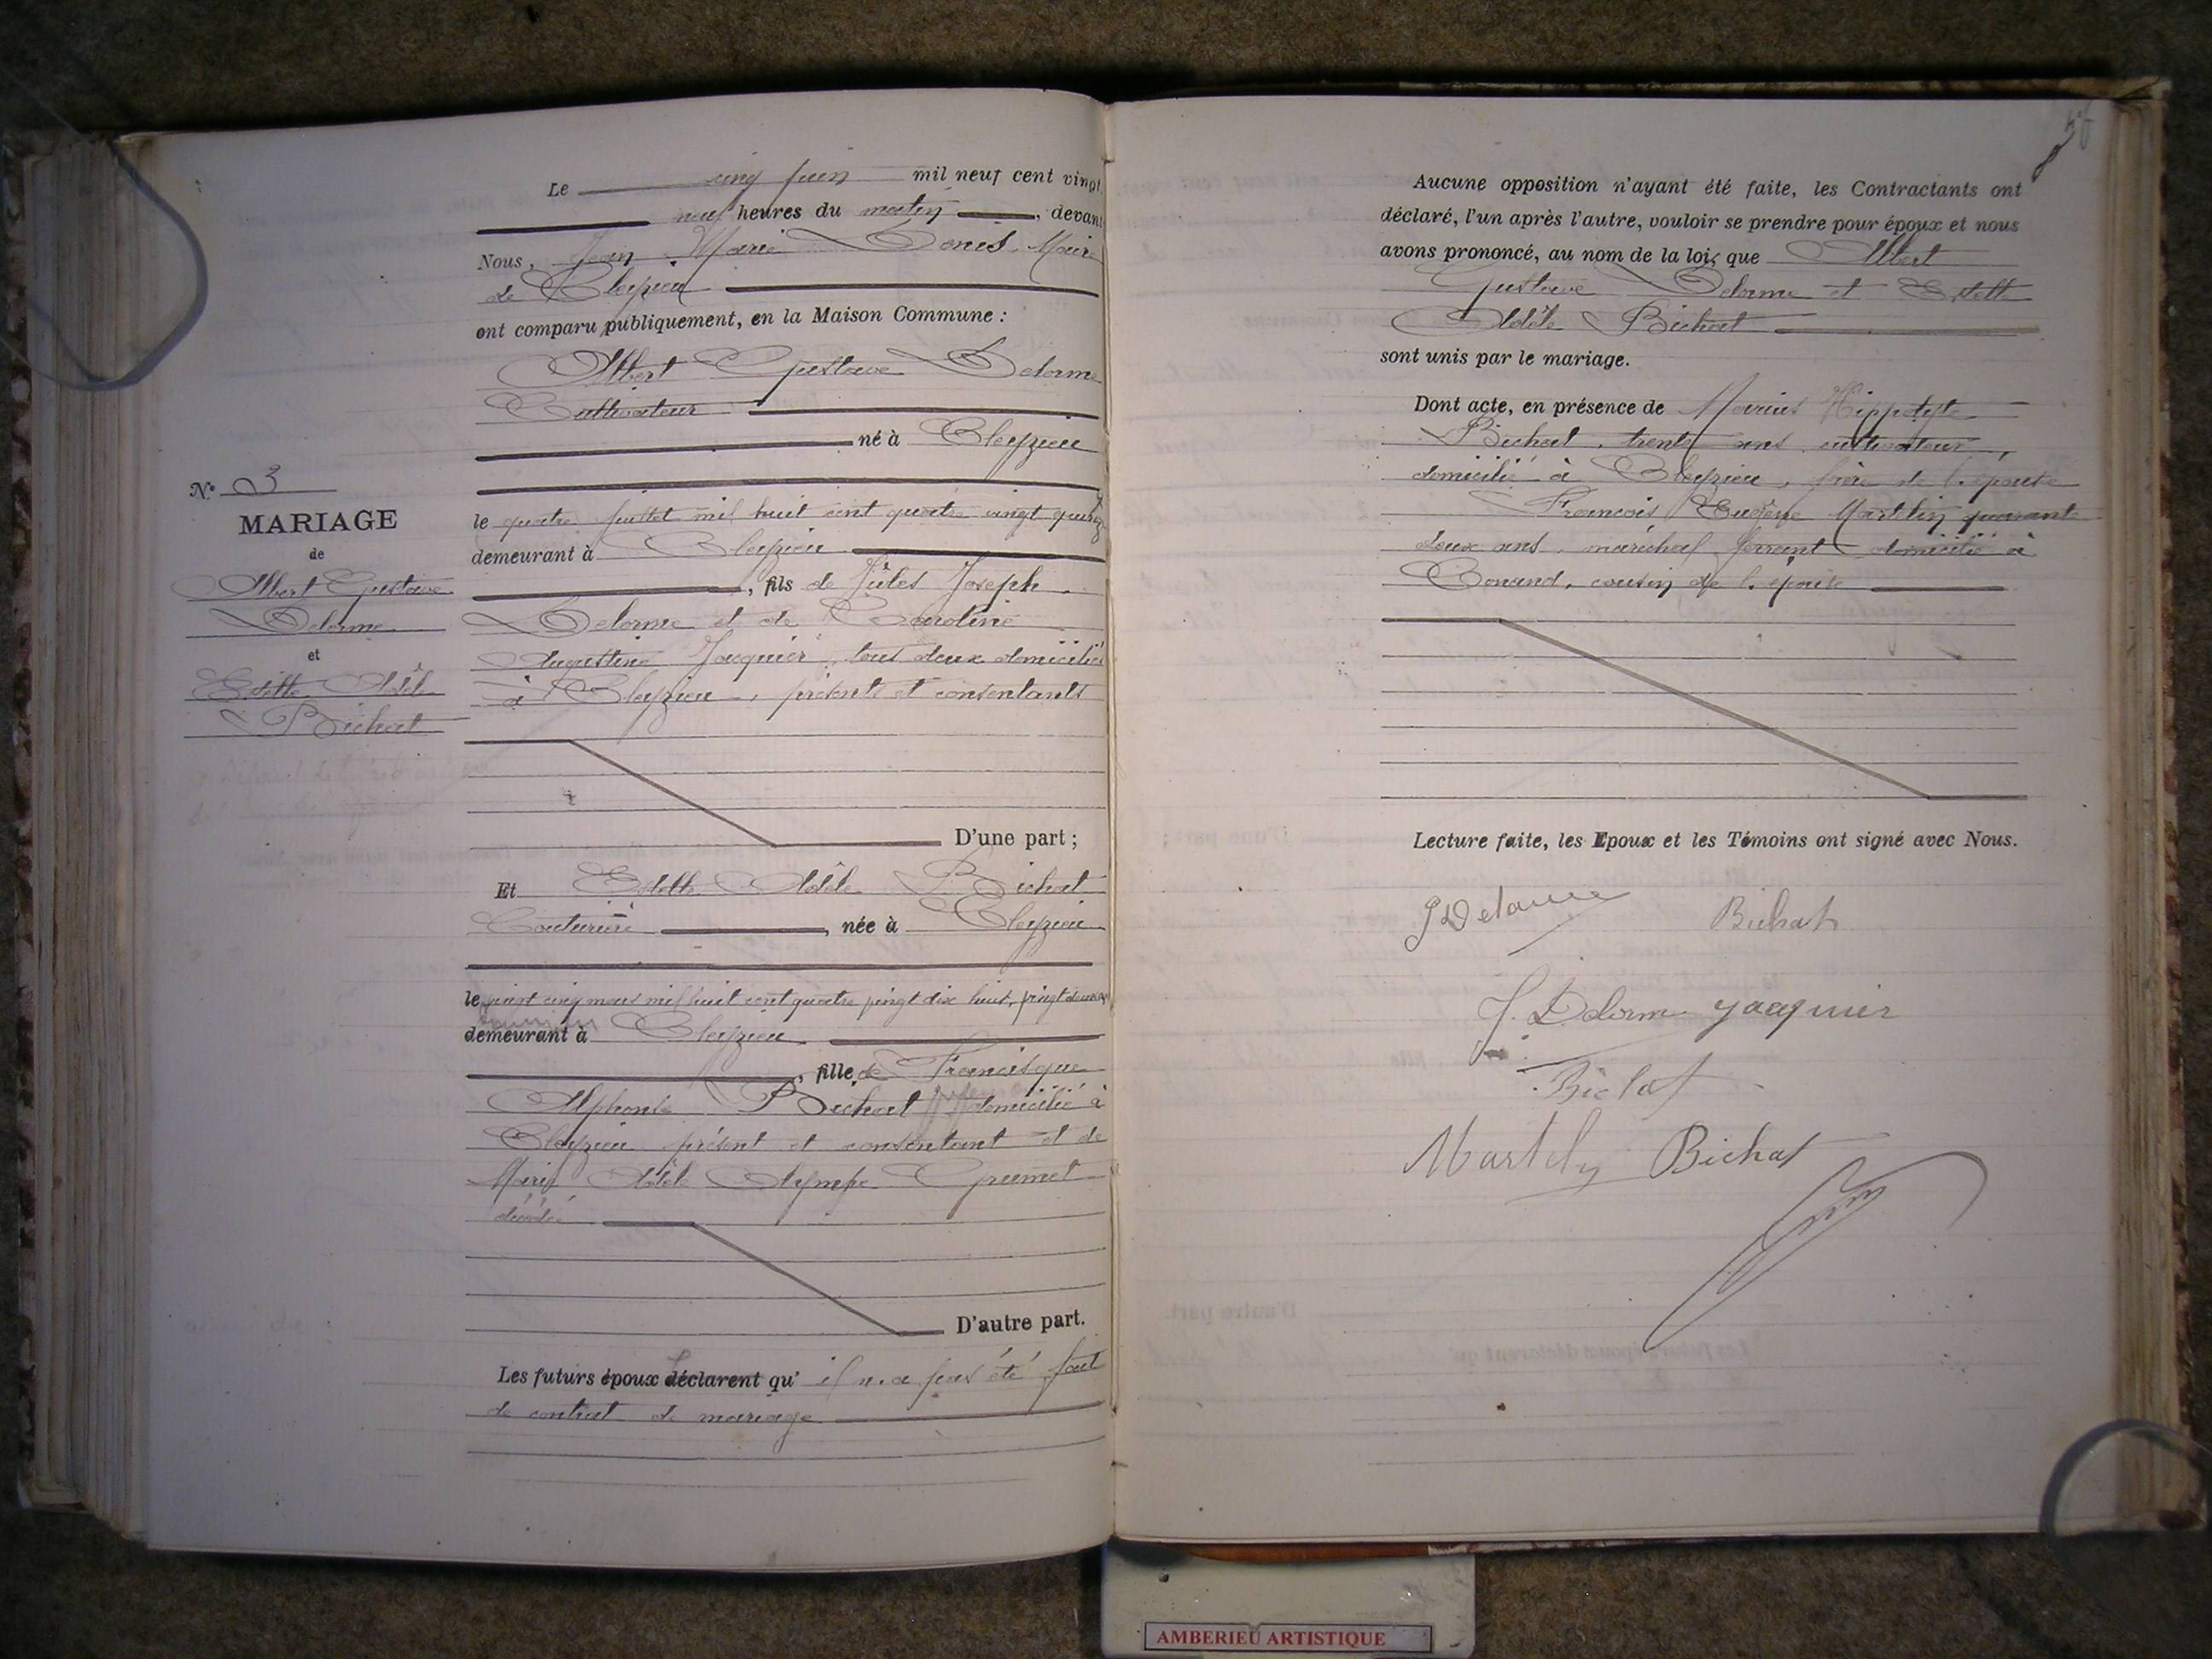 Le cinq juin mil neuf cent vingt
neuf heures du matin, devant
Nous, Jean Marie Denis, Maire
de Cleyzieu
ont comparu publiquement, en la Maison Commune :
Albert Gustave Delorme
Cultivateur
né à Cleyzieu
le quatre juillet mil huit cent quatre vingt quinze
demeurant à Cleyzieu
, fils de Jules Joseph
Delorme et de Caroline
Augustine Jacquier, tous deux domiciliés
à Cleyzieu, présents et consentants
D'une part ;
Et Estelle Adèle Bichat
Couturière, née à Cleyzieu
le vingt cinq mars mil huit cent quatre vingt dix huit, vingt deux ans
demeurant à Cleyzieu
, fille de Francisque
Alphonse Bichat domicilié à
Cleyzieu présent et consentant et de
Marie Adèle Olympe Grumet
décédée
D'autre part.
Les futurs époux déclarent qu' il n'a pas été fait
de contrat de mariage
N° 3
MARIAGE
de
Albert Gustave
Delorme
et
Estelle Adèle
Bichat
Aucune opposition n'ayant été faite, les Contractants ont
déclaré, l'un après l'autre, vouloir se prendre pour époux et nous
avons prononcé, au nom de la loi, que Albert
Gustave Delorme et Estelle
Adèle Bichat
sont unis par le mariage.
Dont acte, en présence de Marius Hippolyte
Bichat, trente ans cultivateur,
domicilié à Cleyzieu, frère de l'épouse
François Eugène Martelin quarante
deux ans, maréchal ferrant domicilié à
Conand, cousin de l'épouse
Lecture faite, les Epoux et les Témoins ont signé avec Nous.
Delorme Bichat
J. Delorme Jacquier
Bichat
Bichat
AMBERIEU ARTISTIQUE